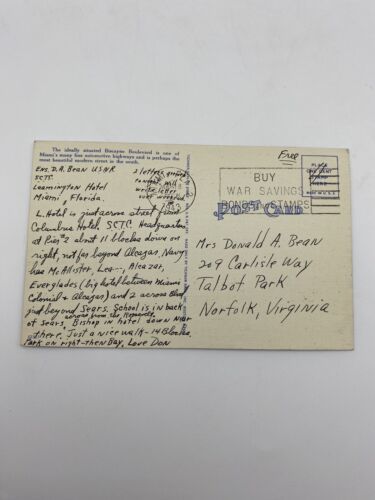 The ideally situated Biscayne Boulevard is one of
Miami's many fine automotive highways and is perhaps the
most beautiful modern street in the south.
Ens. D.A. Bean USNR
SCTC
Leamington Hotel
Miami, Florida.
2 letters
tonight. Will
write letter
over weekend
L. Hotel is just across street from
Columbus Hotel. SCTC. Headquarters
at Pier 2 about 11 blocks down on
right, not far beyond Alcazar. Navy
has McAllister, Lea—, Alcazar,
Everglades (big hotel between Miami
Colonial & Alcazar) and 2 across Blvd
just beyond Sears. School is in back
of Sears, across from the
Bishop in hotel down near
there. Just a nice walk - 14 Blocks.
Park on right - then Bay, Love Don
Free
PLACE
ONE CENT
STAMP
HERE
BUY
WAR SAVINGS
BONDS STAMPS
POST CARD
Mrs Donald A. Bean
209 Carlisle Way
Talbot Park
Norfolk, Virginia